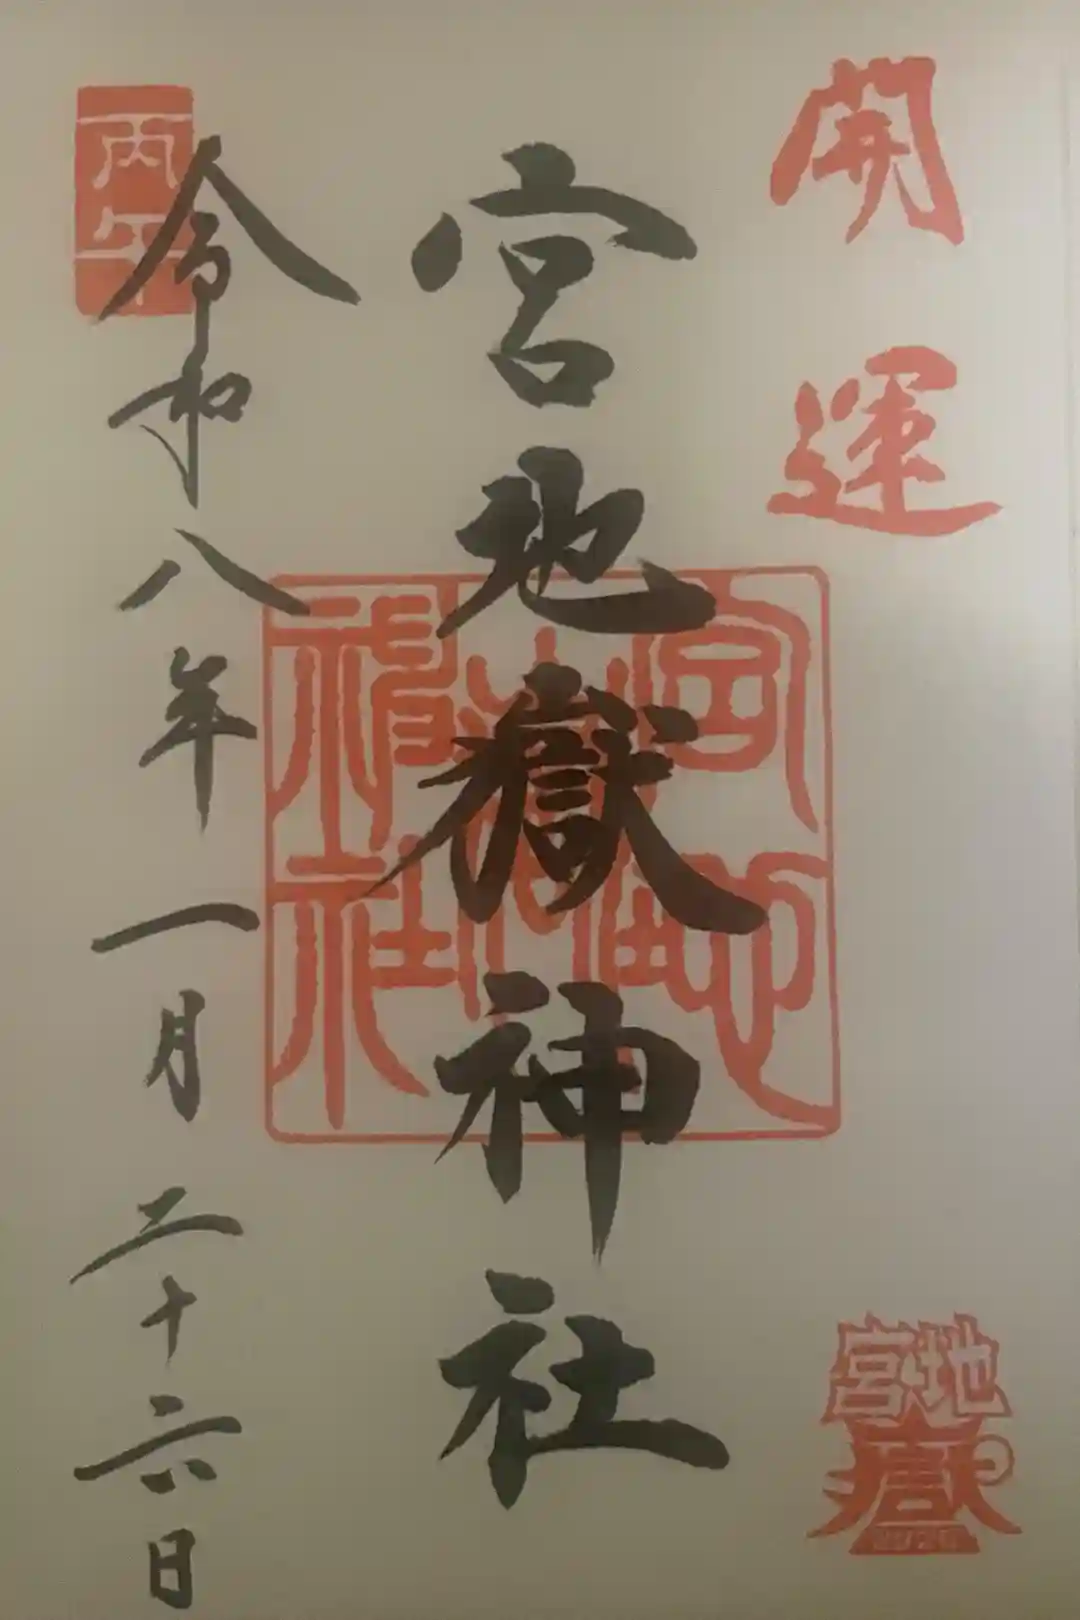 開運
宮地嶽神社
宮地嶽神社
宮地
嶽
丙午
令和八年一月二十六日